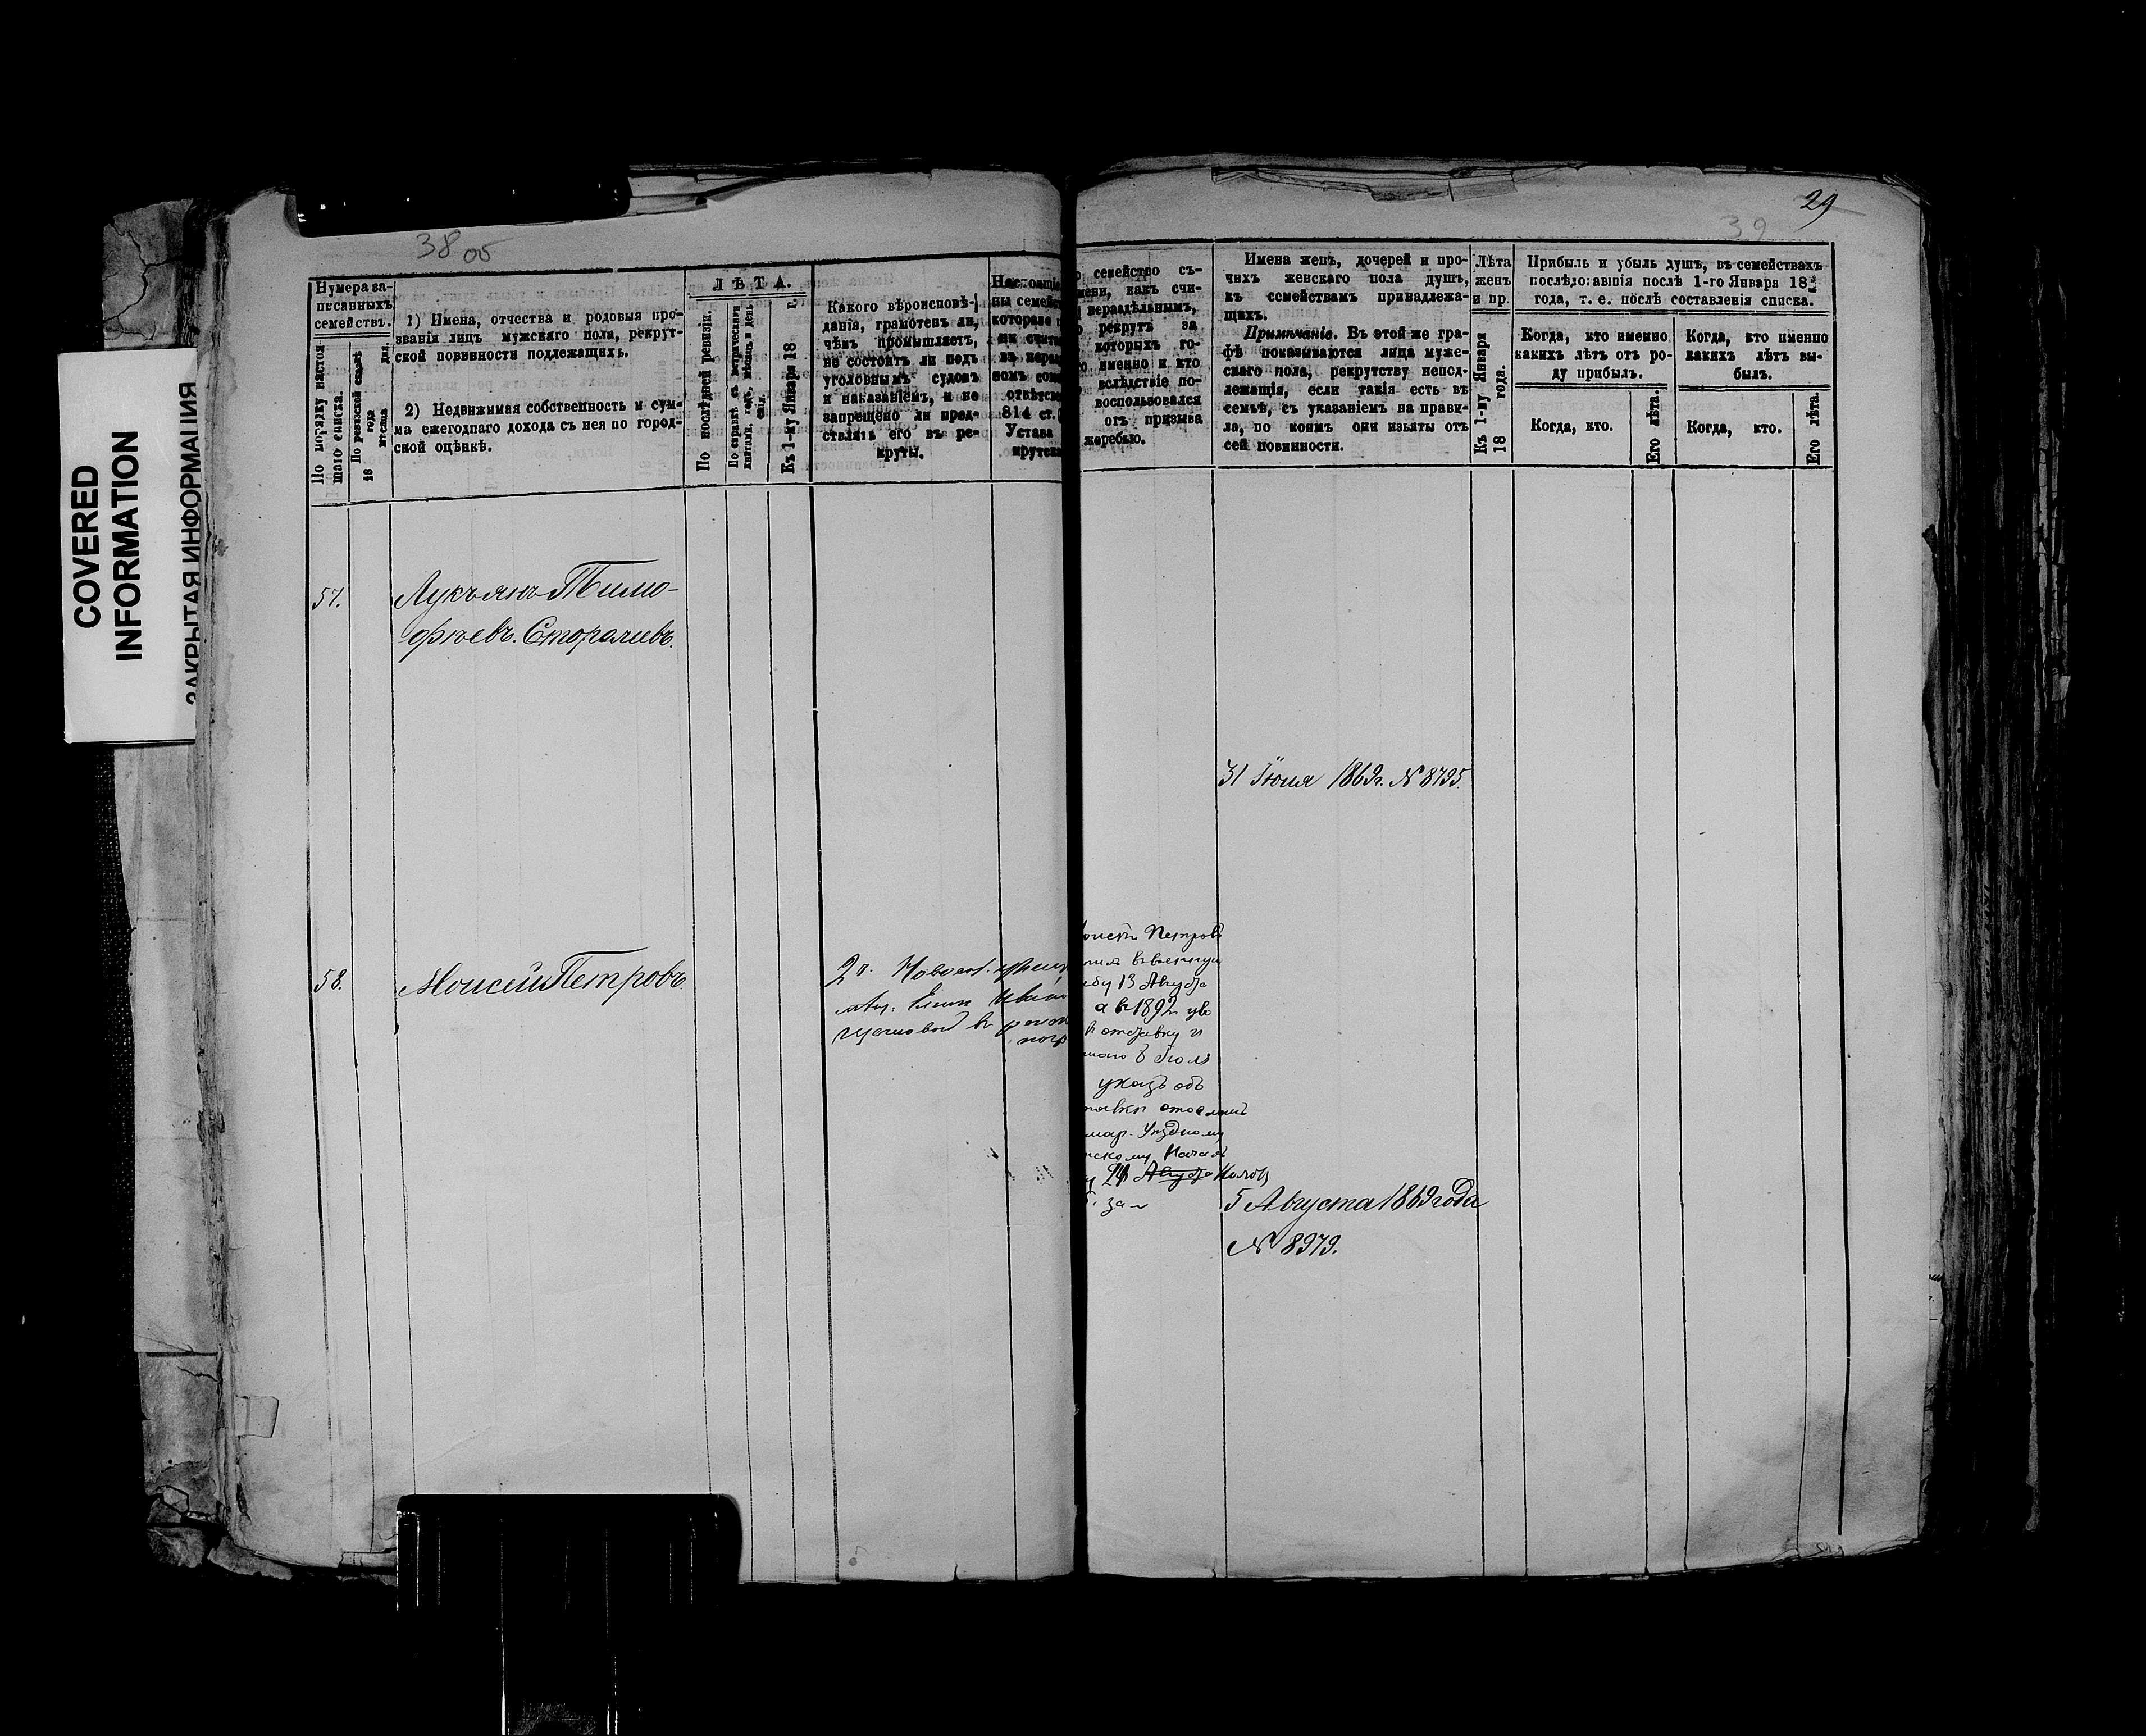 COVERED
INFORMATION
ЗАКРЫТАЯ ИНФОРМАЦИЯ
38 об
Нумера за-
писанныхъ
семействъ.
По порядку настоя
щаго списка.
По ревизской сказкѣ
18 года
мѣсяца дня.
1) Имена, отчества и родовыя про-
званія лицъ мужскаго пола, рекрут-
ской повинности подлежащихъ.
2) Недвижимая собственность и сум-
ма ежегоднаго дохода съ нея по город-
ской оцѣнкѣ.
ЛѢТА.
По послѣдней ревизіи.
По справкѣ съ метрическими
книгами, годъ, мѣсяцъ и день
Къ 1-му Января 18 г.
Какого вѣроисповѣ-
данія, грамотенъ ли,
чѣмъ промышляетъ,
не состоитъ ли подъ
уголовнымъ судомъ
и наказаніемъ, и не
запрещено ли пред-
ставлять его въ ре-
круты.
Настоящі
ны семейс
которое
ни счита
въ нераз
номъ сос
отвѣтс
814 ст.
Устава
крутск
57.
Лукъянъ Тимо-
фѣевъ. Сторачевъ.
58.
Моисей Петровъ
29
39
семейство съ-
мени, какъ счи-
нераздѣльнымъ,
рекрутъ за
которыхъ го-
именно и кто
вслѣдствіе по-
воспользовался
отъ призыва
жеребью.
Имена женъ, дочерей и про-
чихъ женскаго пола душъ,
къ семействамъ принадлежа-
щихъ.
Примѣчаніе. Въ этой же гра-
фѣ показываются лица муже-
скаго пола, рекрутству непод-
лежащія, если такія есть въ
семьѣ, съ указаніемъ на прави-
ла, по коимъ они изъяты отъ
сей повинности.
Лѣта
женъ
и пр.
Къ 1-му Января
18 года.
Прибыль и убыль душъ, въ семействахъ
послѣдовавшія послѣ 1-го Января 18
года, т. е. послѣ составленія списка.
Когда, кто именно
какихъ лѣтъ отъ ро-
ду прибылъ.
Когда, кто именно
какихъ лѣтъ вы-
былъ.
Когда, кто.
Его лѣта.
Когда, кто.
Его лѣта.
31 Іюля 1869г. № 8795.
Петровъ
13 Августа
а въ 1892 уво
въ отставку и
8 Іюля
указъ объ
Уѣздному
24 Августа
за
5 Августа 1869 года
№ 8979.